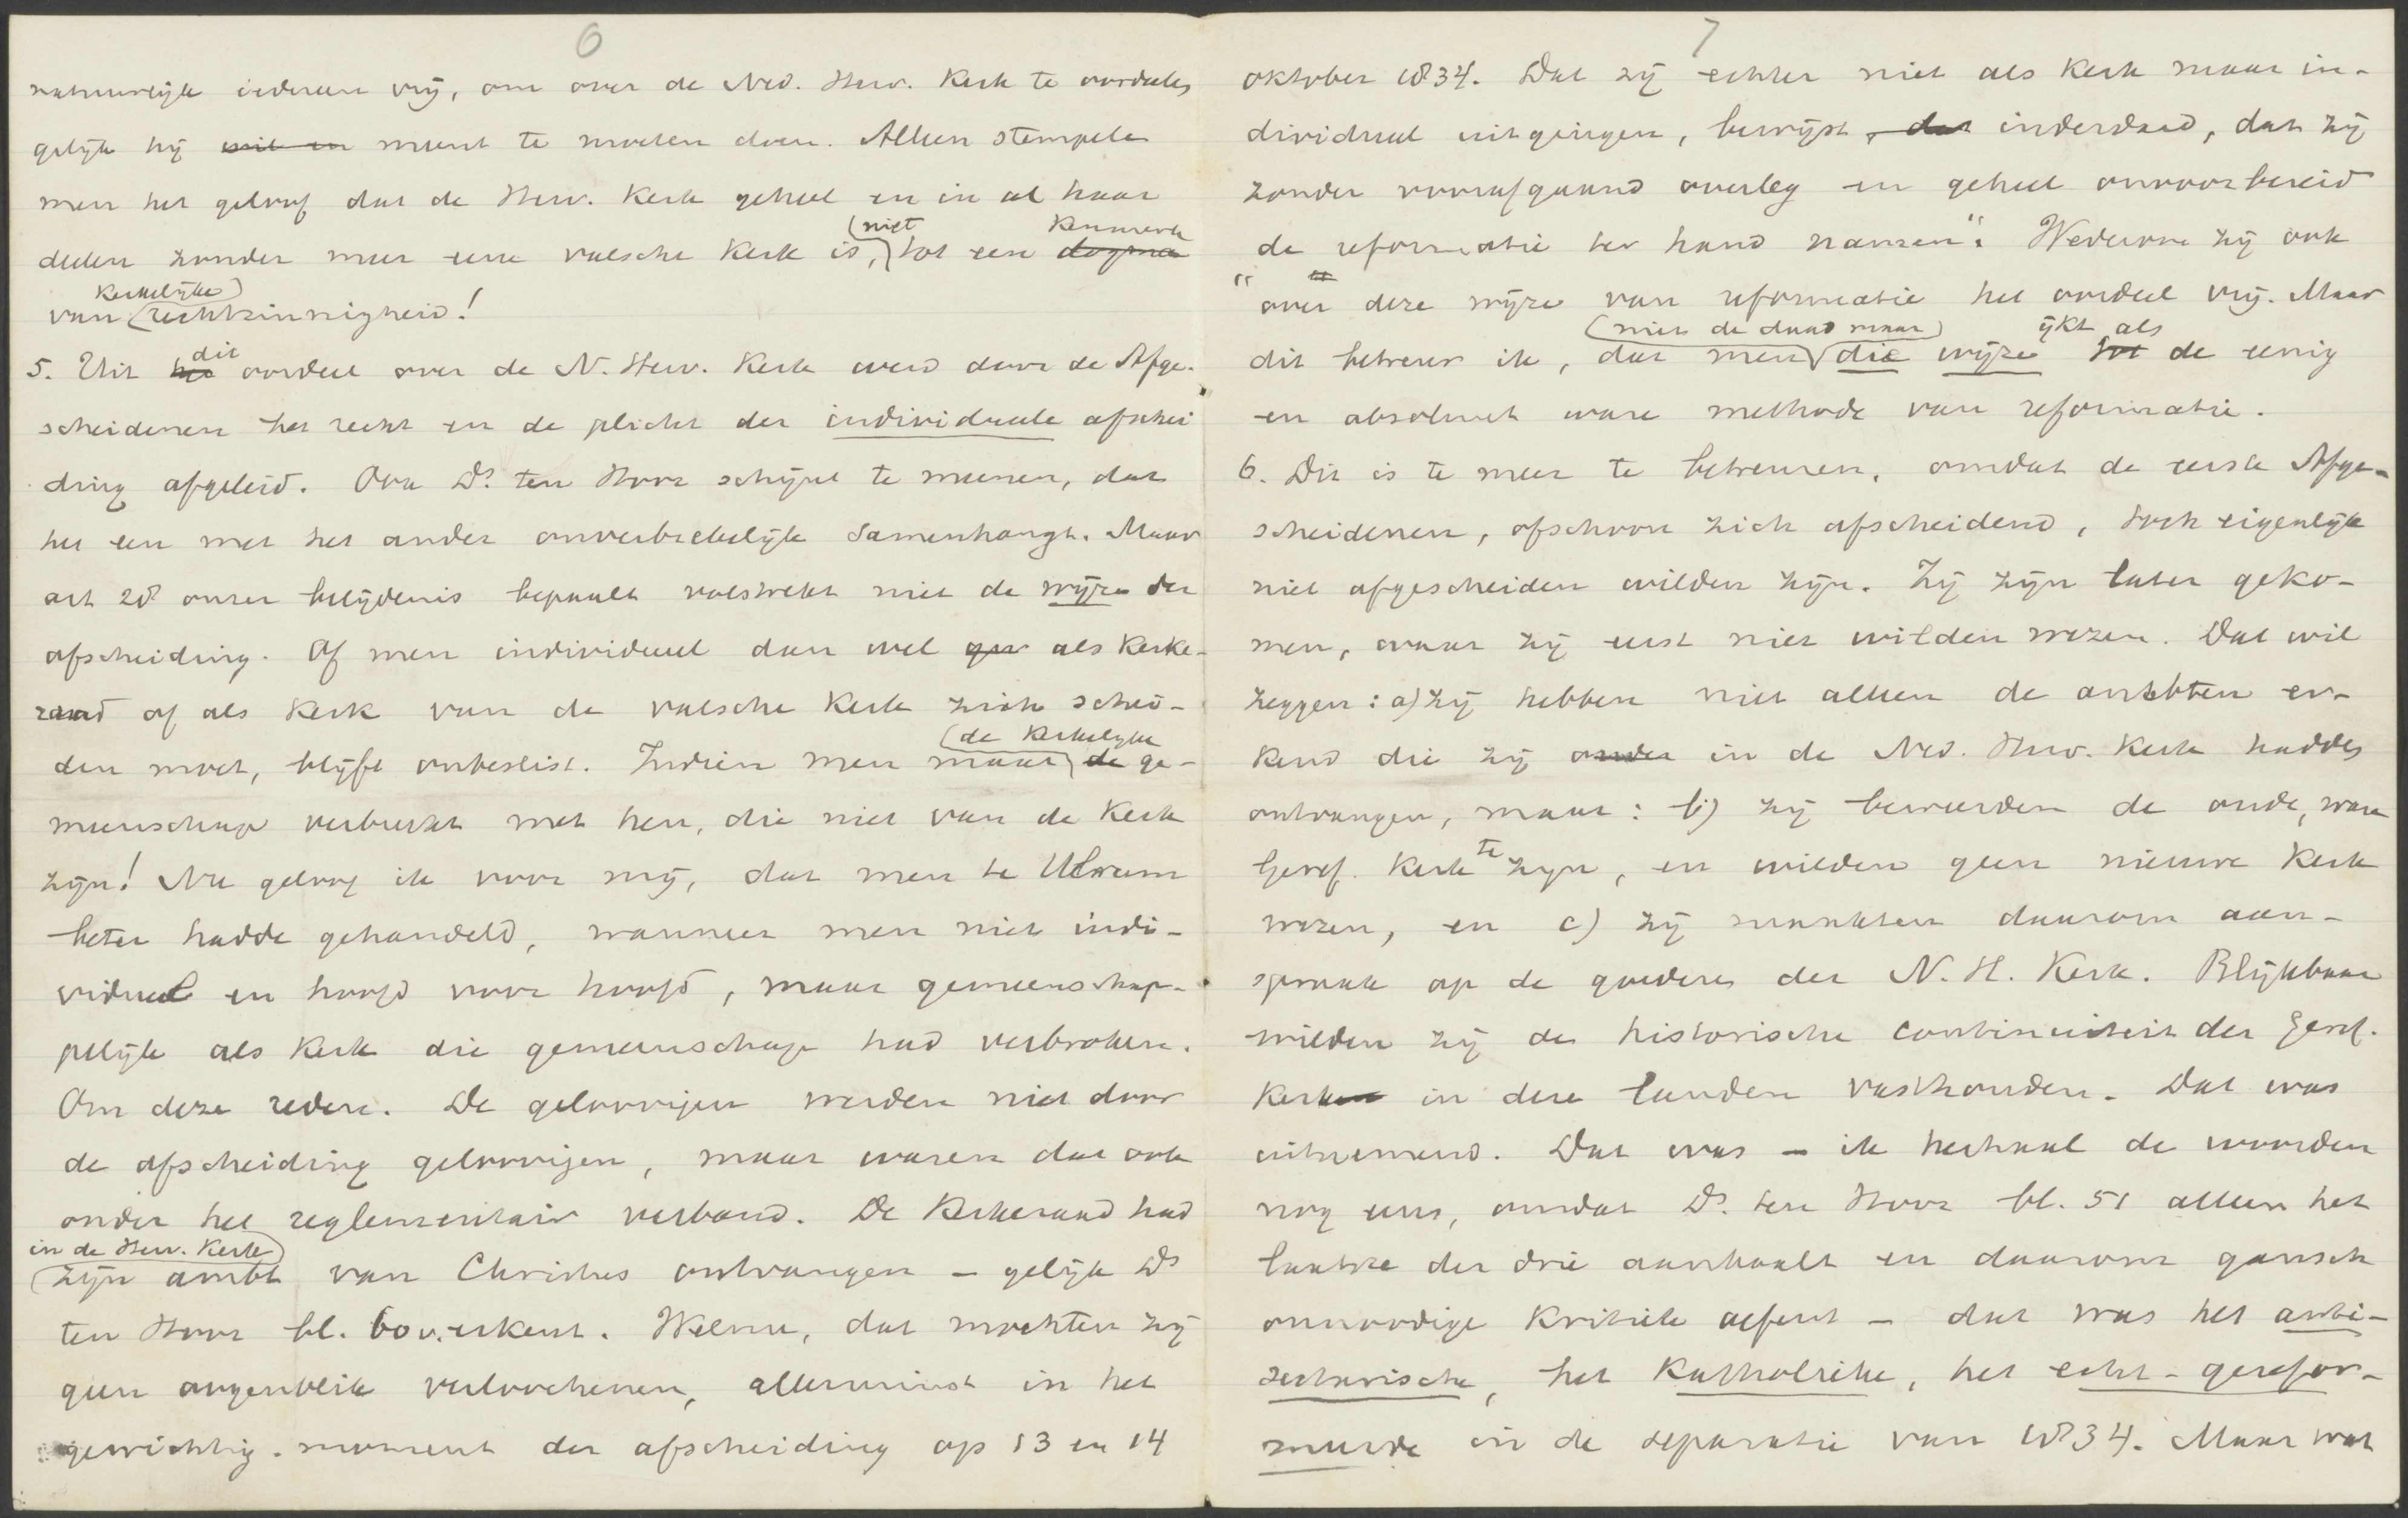 6
natuurlijk iedereen vrij, om over de Ned. Herv. Kerk te oordeelen
gelijk hij wil en meent te moeten doen. Alleen stempele
men het geloof dat de Herv. Kerk geheel en in al haar
(niet kenmerk
deelen zonder meer eene valsche Kerk is, tot een dogma
kerkelijke)
van (rechtzinnigheid!
dit
5. Uit het oordeel over de N. Herv. Kerk werd door de Afge-
scheidenen het recht en de plicht der individueele afschei
ding afgeleid. Ook Ds. ten Hoor schijnt te meenen, dat
het een met het ander onverbrekelijk samenhangt. Maar
art 28 onzer belijdenis bepaalt volstrekt niet de wijze der
afscheiding. Of men individueel dan wel als Kerke-
raad of als Kerk van de valsche Kerk zich schei-
(de Kerkelijke
den moet, blijft onbeslist. Indien men maar de ge-
meenschap verbreekt met hen, die niet van de Kerk
zijn! Nu geloof ik voor mij, dat men te Ulrum
beter hadde gehandeld, wanneer men niet indi-
vidueel en hoofd voor hoofd, maar gemeenschap-
pelijk als Kerk die gemeenschap had verbroken.
Om deze reden. De geloovigen werden niet door
de afscheiding geloovigen, maar waren dat ook
onder het reglementair verband. De Kerkeraad had
in de Herv. Kerk)
(zijn ambt van Christus ontvangen – gelijk Ds
ten Hoor bl. 60v. erkent. Welnu, dat mochten zij
geen oogenblik verloochenen, allerminst in het
gewichtig moment der afscheiding op 13 en 14
7
oktober 1834. Dat zij echter niet als Kerk maar in-
dividueel uitgingen, bewijst, dat inderdaad, dat zij
zonder voorafgaand overleg en geheel onvoorbereid
de reformatie ter hand namen". Wederom zij ook
" over deze wijze van reformatie het oordeel vrij. Maar
(niet de daad maar) ijkt als
dit betreur ik, dat men die wijze tot de eenig
en absoluut ware methode van reformatie.
6. Dit is te meer te betreuren, omdat de eerste Afge-
scheidenen, ofschoon zich afscheidend, toch eigenlijk
niet afgescheiden wilden zijn. Zij zijn later geko-
men, waar zij eerst niet wilden wezen. Dat wil
zeggen: a) zij hebben niet alleen de ambten er-
kend die zij onder in de Ned. Herv. Kerk hadden
ontvangen, maar: b) zij beweerden de oude, ware
te
Geref. Kerk zijn, en wilden geen nieuwe Kerk
wezen, en c) zij maakten daarom aan-
spraak op de goederen der N. H. Kerk. Blijkbaar
wilden zij de historische continuiteit der Geref.
Kerken in deze landen vasthouden. Dat was
uitnemend. Dat was – ik herhaal de woorden
nog eens, omdat Ds. ten Hoor bl. 51 alleen het
laatste der drie aanhaalt en daarom gansch
onnoodige kritiek oefent – dat was het anti-
sectarische, het Katholieke, het echt-gerefor-
meerde in de separatie van 1834. Maar wat